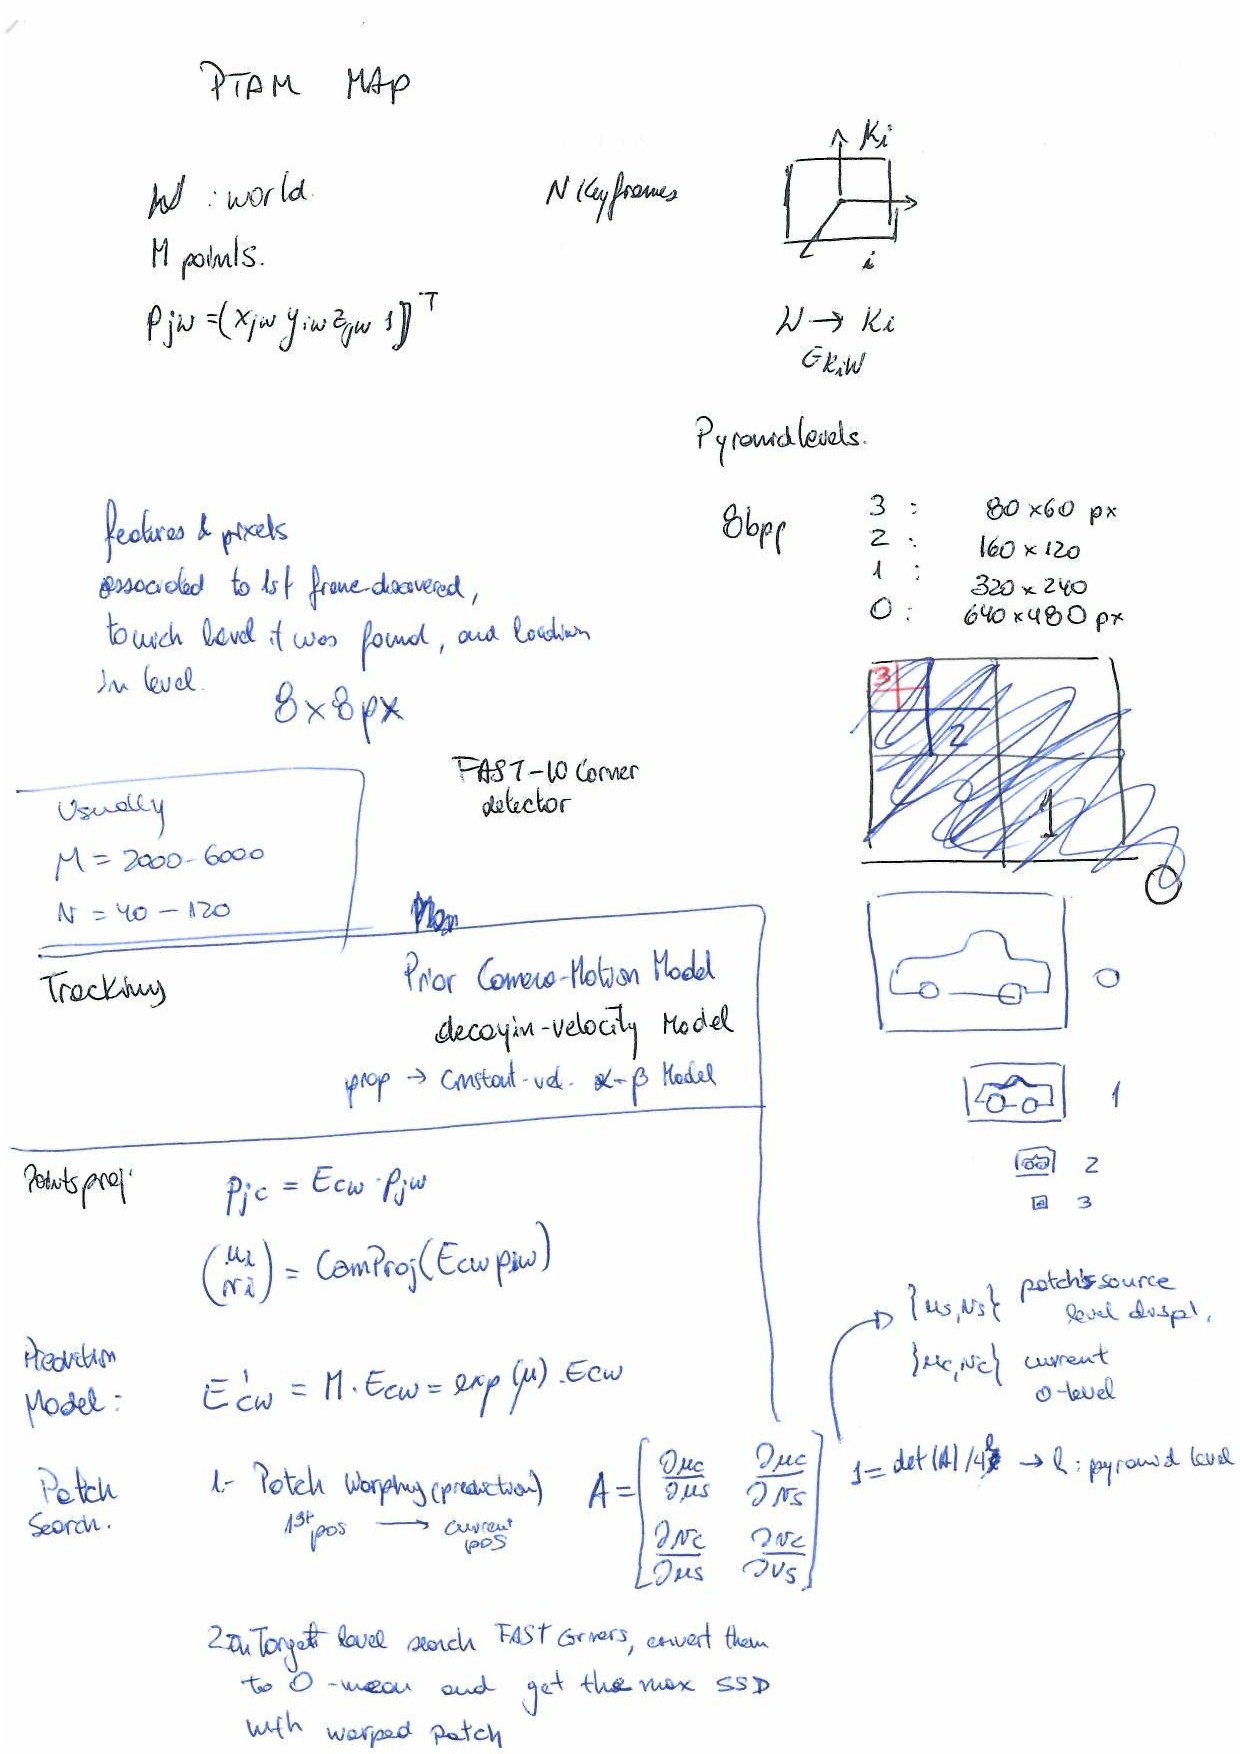 PTAM MAP
W : world.
M points.
Pjw = (xjw yjw zjw 1)ᵀ
N Keyframes
Ki
i
W → Ki
EKiW
Pyramid levels.
8bpp
3 : 80x60 px
2 : 160 x 120
1 : 320 x 240
0 : 640x480 px
features & pixels
associated to 1st frame discovered,
to wich level it was found, and location
in level.
8x8px
3
2
1
0
FAST-10 Corner
detector
Usually
M = 2000-6000
N = 40 - 120
Tracking
Prior Camera-Motion Model
decayin-velocity Model
prop → Constant-vel. α-β Model
0
1
2
3
Points proj.
Pjc = Ecw · Pjw
(ui vi) = CamProj(Ecw piw)
Prediction
Model:
E'cw = M · Ecw = exp(μ) . Ecw
{us, vs} patch's source
level displ.
{uc, vc} current
0-level
Patch
Search.
1.- Patch Warping (prediction)
1st pos → current pos
A = [∂uc/∂us ∂uc/∂vs
∂vc/∂us ∂vc/∂vs]
1 = det(A)/4ˡ → l : pyramid level
2. In Target level search FAST Corners, convert them
to 0-mean and get the max SSD
with warped patch